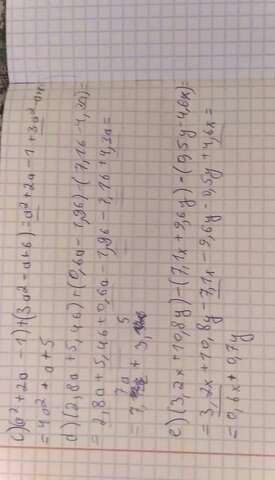 c) (a² + 2a - 1) + (3a² - a + 6) = a² + 2a - 1 + 3a² - a +
= 4a² + a + 5
d) (2,8a + 5,4b) + (0,6a - 1,9b) - (7,1b - 4,3a) =
= 2,8a + 5,4b + 0,6a - 1,9b - 7,1b + 4,3a =
= 7,7a + 3,
e) (3,2x + 10,8y) - (7,1x + 9,6y) - (0,5y - 4,6x) =
= 3,2x + 10,8y - 7,1x - 9,6y - 0,5y + 4,6x =
= 0,6x + 0,7y